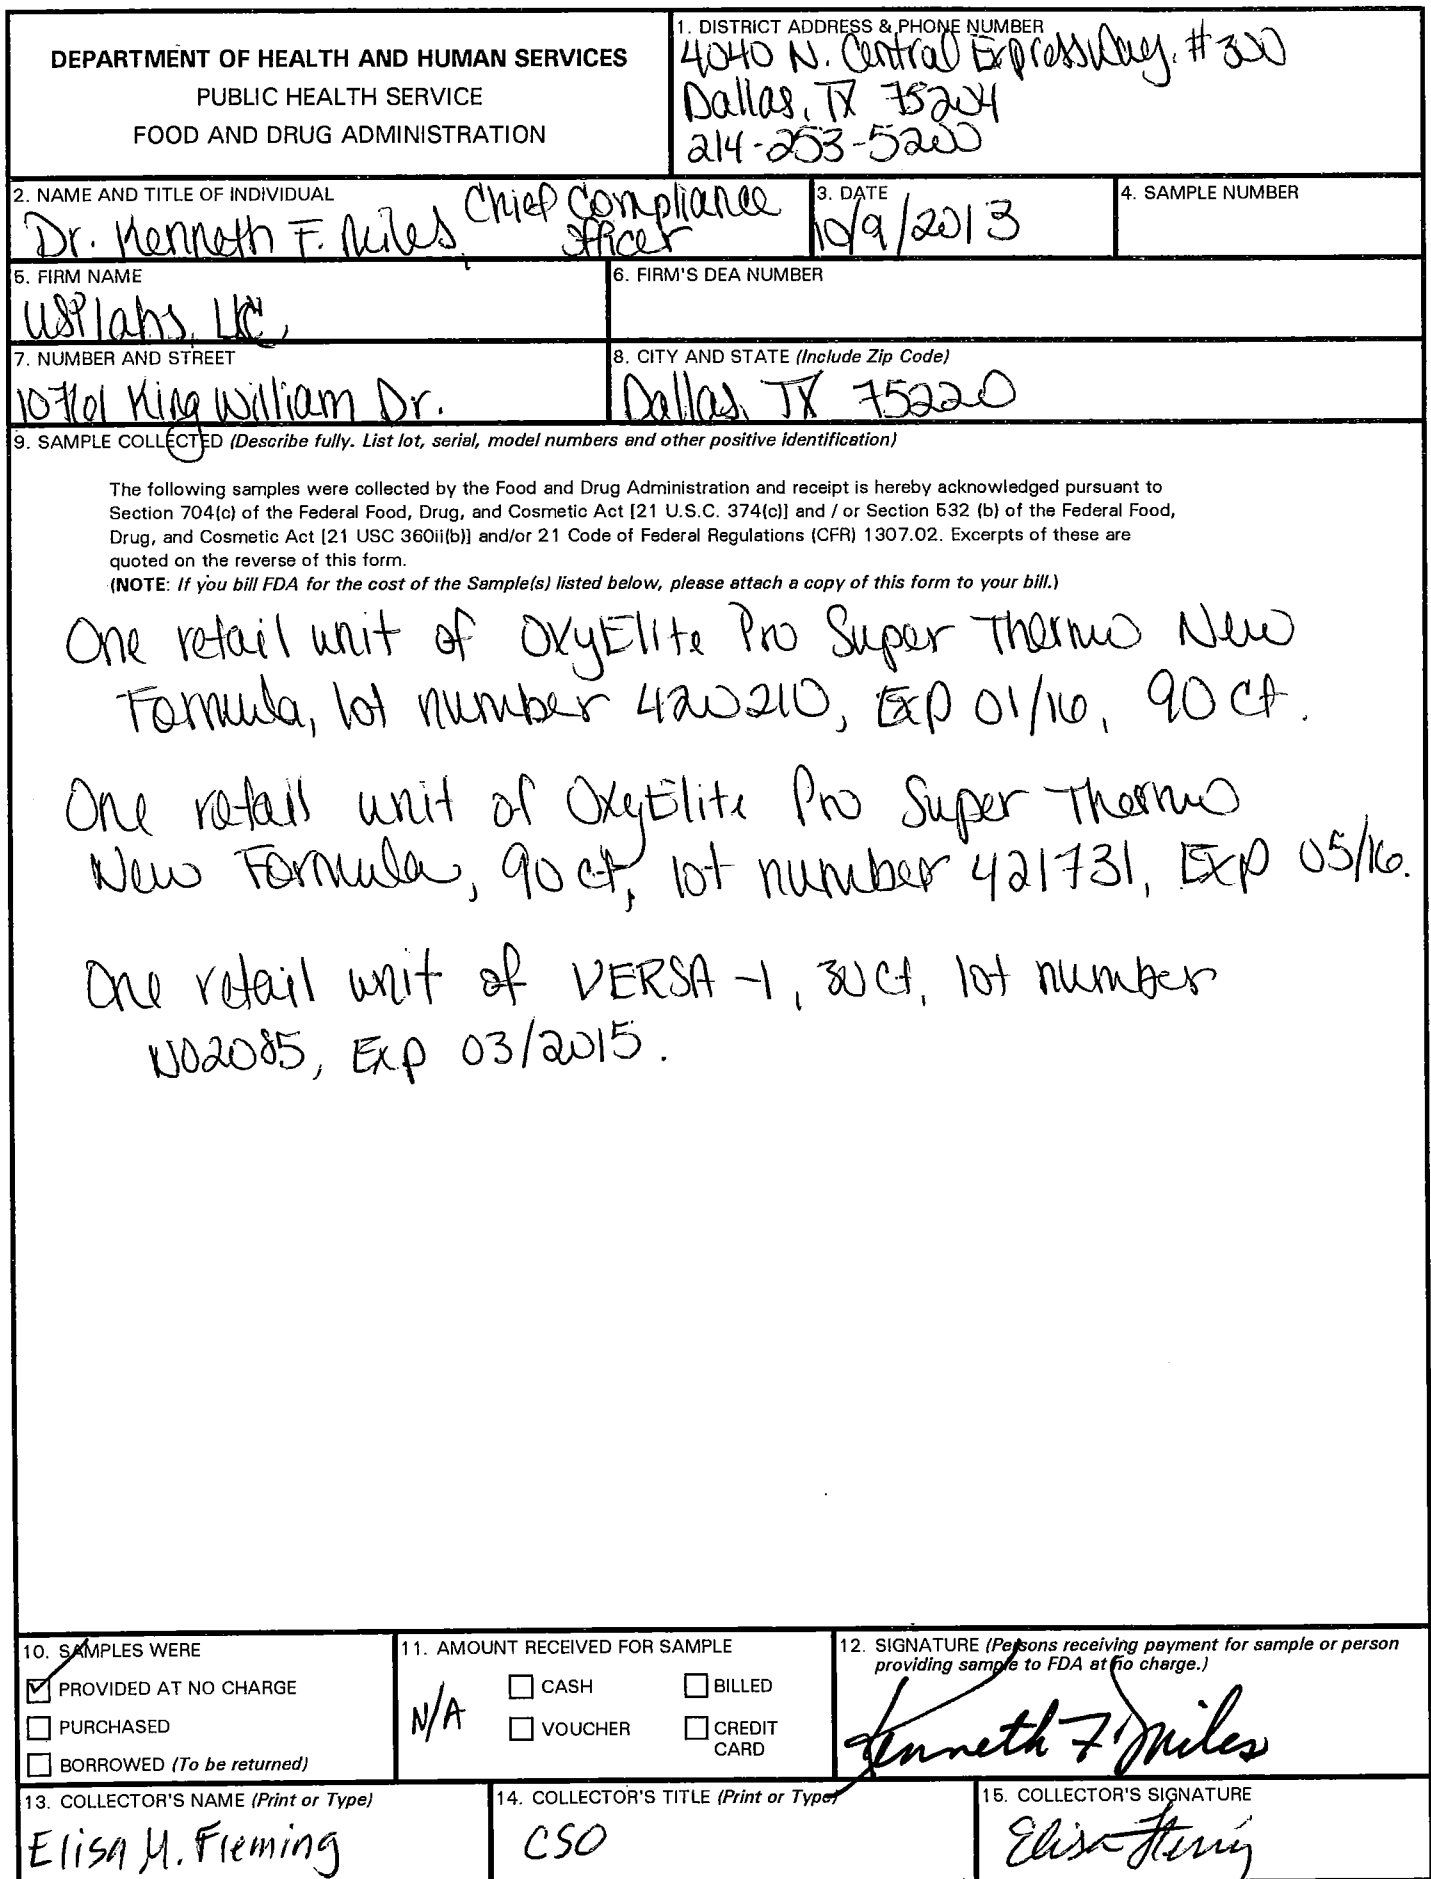 DEPARTMENT OF HEALTH AND HUMAN SERVICES
PUBLIC HEALTH SERVICE
FOOD AND DRUG ADMINISTRATION
1. DISTRICT ADDRESS & PHONE NUMBER
4040 N. Central Expressway. #300
Dallas, TX 75204
214-253-5200
2. NAME AND TITLE OF INDIVIDUAL
Dr. Kenneth F. Miles, Chief Compliance
Officer
3. DATE
10/9/2013
4. SAMPLE NUMBER
5. FIRM NAME
USPlabs, LLC
6. FIRM'S DEA NUMBER
7. NUMBER AND STREET
10761 King William Dr.
8. CITY AND STATE (Include Zip Code)
Dallas, TX 75220
9. SAMPLE COLLECTED (Describe fully. List lot, serial, model numbers and other positive identification)
The following samples were collected by the Food and Drug Administration and receipt is hereby acknowledged pursuant to
Section 704(c) of the Federal Food, Drug, and Cosmetic Act [21 U.S.C. 374(c)] and / or Section 532 (b) of the Federal Food,
Drug, and Cosmetic Act [21 USC 360ii(b)] and/or 21 Code of Federal Regulations (CFR) 1307.02. Excerpts of these are
quoted on the reverse of this form.
(NOTE: If you bill FDA for the cost of the Sample(s) listed below, please attach a copy of this form to your bill.)
One retail unit of OxyElite Pro Super Thermo New
Formula, lot number 420210, Exp 01/16, 90 ct.
One retail unit of OxyElite Pro Super Thermo
New Formula, 90 ct, lot number 421731, Exp 05/16.
One retail unit of VERSA-1, 30 ct, lot number
N02085, Exp 03/2015.
10. SAMPLES WERE
PROVIDED AT NO CHARGE
PURCHASED
BORROWED (To be returned)
11. AMOUNT RECEIVED FOR SAMPLE
N/A
CASH
BILLED
VOUCHER
CREDIT
CARD
12. SIGNATURE (Persons receiving payment for sample or person
providing sample to FDA at no charge.)
Kenneth F Miles
13. COLLECTOR'S NAME (Print or Type)
Elisa M. Fleming
14. COLLECTOR'S TITLE (Print or Type)
CSO
15. COLLECTOR'S SIGNATURE
Elisa Fleming